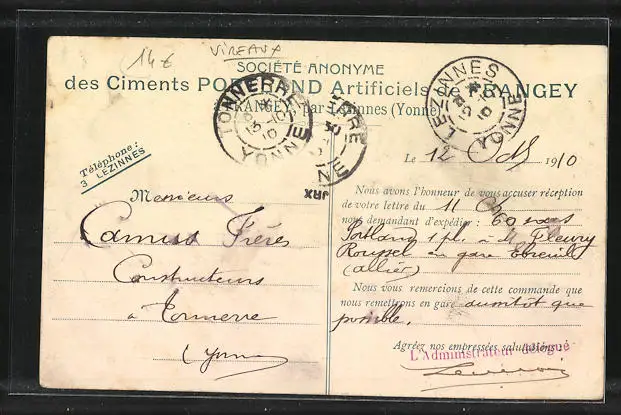 14€
VIREAUX
SOCIÉTÉ ANONYME
des Ciments PORTLAND Artificiels de FRANGEY
FRANGEY, par Lézinnes (Yonne)
TONNERRE
YONNE
LEZINNES
YONNE
Téléphone:
3 LEZINNES
Le 12 1910
Messieurs
Camus Frères
Constructeurs
à Tonnerre
Yonne
Nous avons l'honneur de vous accuser réception
de votre lettre du 11
nous demandant d'expédier: 60 sacs
Portland à M Fleury
Roussel en gare Ebreuil
(Allier)
Nous vous remercions de cette commande que
nous remettrons en gare aussitôt que
possible.
Agréez nos empressées salutations.
L'Administrateur délégué